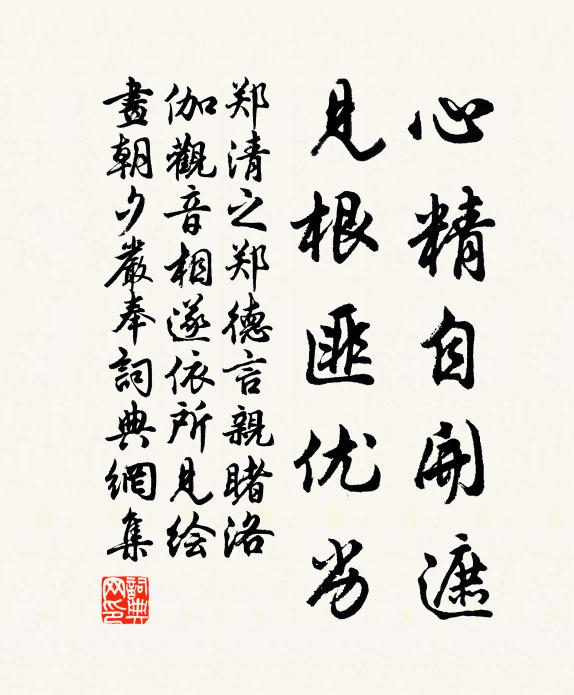 心精自開遮
見根匪优劣
郑清之郑德言親睹洛
伽觀音相遂依所見绘
畫朝夕嚴奉詞典網集
詞典網印